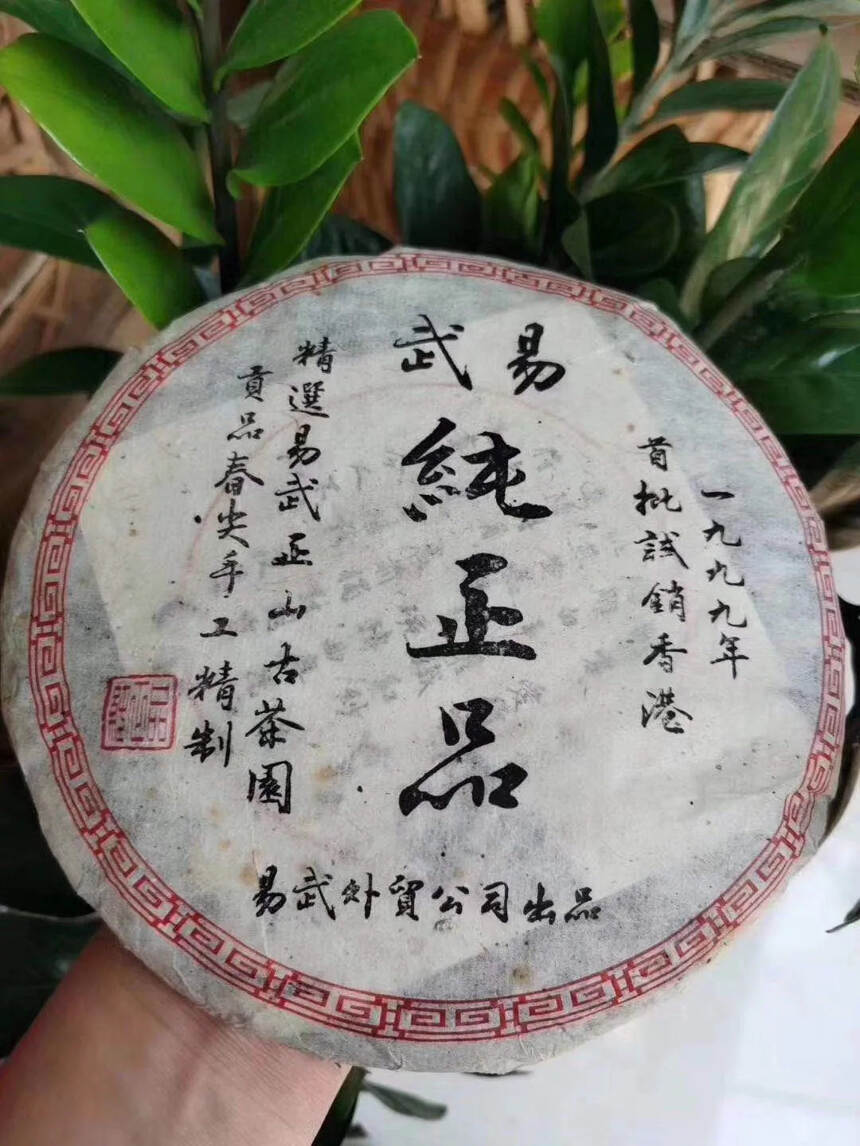 易武
純正品
一九九九年
首批試銷香港
精選易武正山古茶園
貢品春尖手工精制
易武外貿公司出品